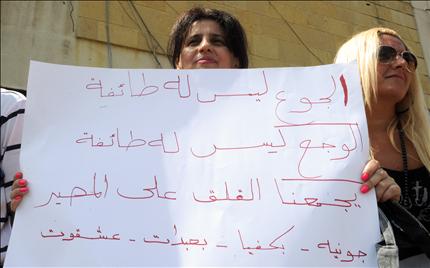 الجوع ليس له طائفية
الوجع ليس له طائفة
يجمعنا القلق على المصير
جونيه - بكفيا - بعبدات - عشقوت